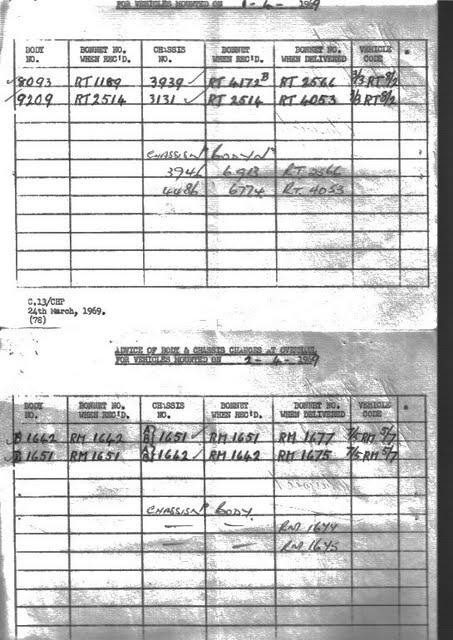 FOR VEHICLES MOUNTED ON 1 - 4 - 1969
BODY NO. BONNET NO. WHEN REC'D. CHASSIS NO. BONNET WHEN REC'D. BONNET NO. WHEN DELIVERED VEHICLE CODE
8093 RT 1189 3939 RT 4172B RT 2566 3/3 RT 8/2
9209 RT 2514 3131 RT 2514 RT 4053 3/3 RT 8/2
CHASSIS Nº BODY Nº
3946 6913 RT 2566
4486 6774 RT 4053
C.13/CHP
24th March, 1969.
(78)
ADVICE OF BODY & CHASSIS CHANGES AT OVERHAUL
FOR VEHICLES MOUNTED ON 2 - 4 - 1969
BODY NO. BONNET NO. WHEN REC'D. CHASSIS NO. BONNET WHEN REC'D. BONNET NO. WHEN DELIVERED VEHICLE CODE
B 1642 RM 1642 A B} 1651 RM 1651 RM 1677 7/5 RM 5/7
B 1651 RM 1651 A B} 1642 RM 1642 RM 1675 7/5 RM 5/7
CHASSIS Nº BODY
— — RM 1644
— — RM 1645